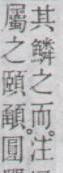 其鱗之而。注
屬之頤䫇圓